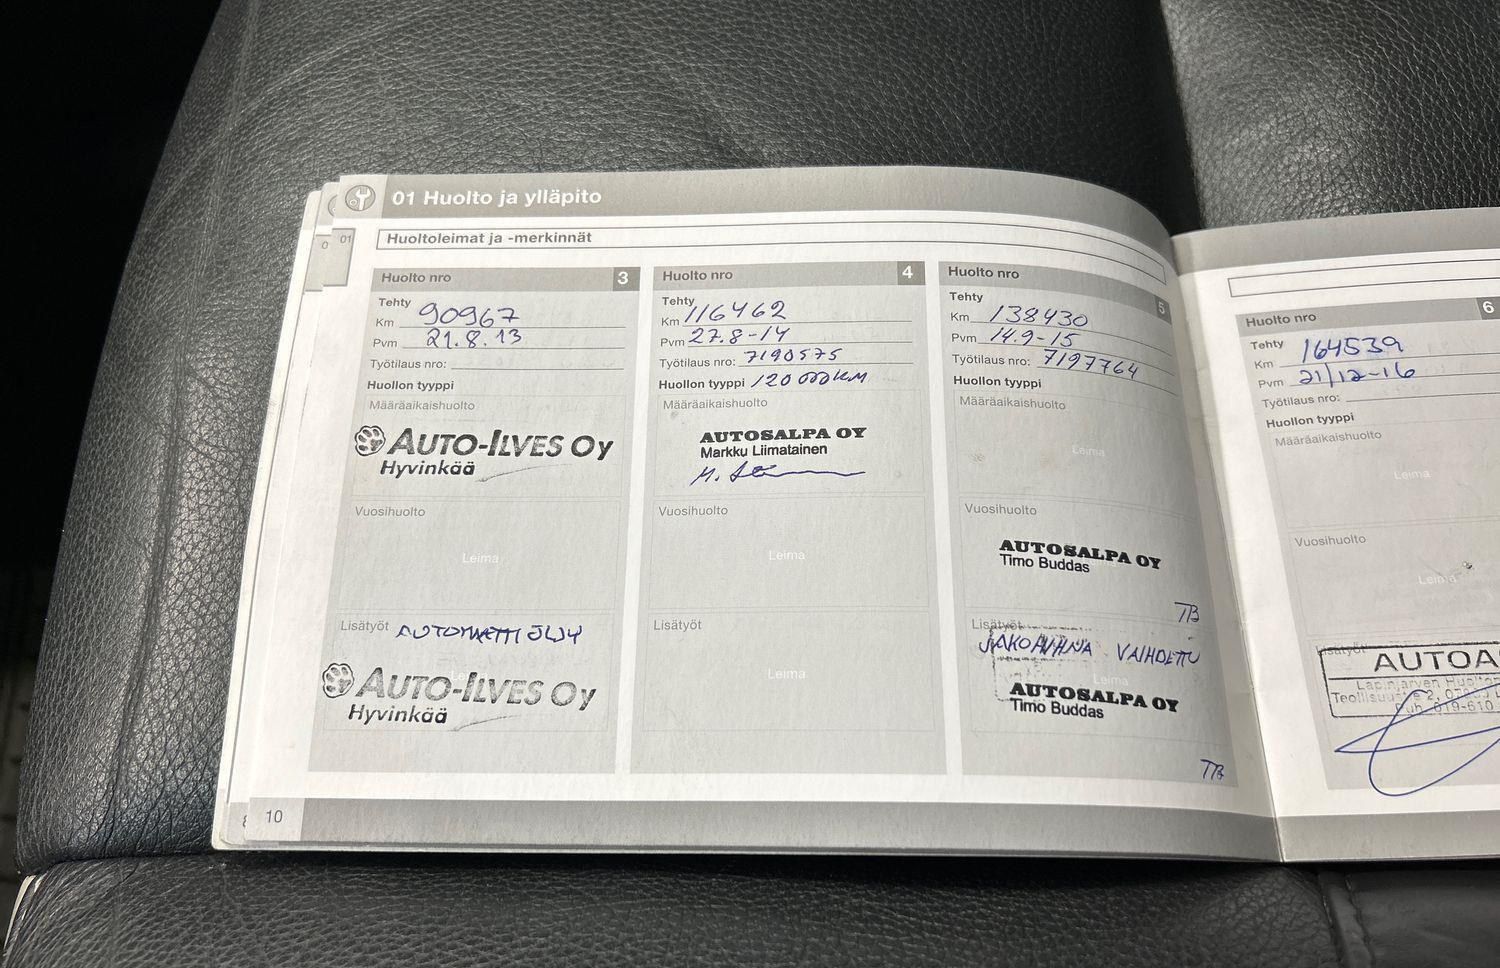 01 Huolto ja ylläpito
01
0
Huoltoleimat ja -merkinnät
Huolto nro 3
Tehty
Km 90967
Pvm 21.8.13
Työtilaus nro:
Huollon tyyppi
Määräaikaishuolto
AUTO-ILVES Oy
Hyvinkää
Vuosihuolto
Leima
Lisätyöt AUTOMAATTI ÖLJY
AUTO-ILVES Oy
Hyvinkää
Huolto nro 4
Tehty
Km 116462
Pvm 27.8-14
Työtilaus nro: 7190575
Huollon tyyppi 120 000KM
Määräaikaishuolto
AUTOSALPA OY
Markku Liimatainen
Vuosihuolto
Leima
Lisätyöt
Leima
Huolto nro 5
Tehty
Km 138430
Pvm 14.9-15
Työtilaus nro: 7197764
Huollon tyyppi
Määräaikaishuolto
Leima
Vuosihuolto
AUTOSALPA OY
Timo Buddas
TB
Lisätyöt
JAKOHIHNA VAIHDETTU
Leima
AUTOSALPA OY
Timo Buddas
TB
10
Huolto nro 6
Tehty
Km 164539
Pvm 21/12-16
Työtilaus nro:
Huollon tyyppi
Määräaikaishuolto
Leima
Vuosihuolto
Leima
Lisätyöt
AUTOA
Lapinjärven Huolto
Puh. 019-610